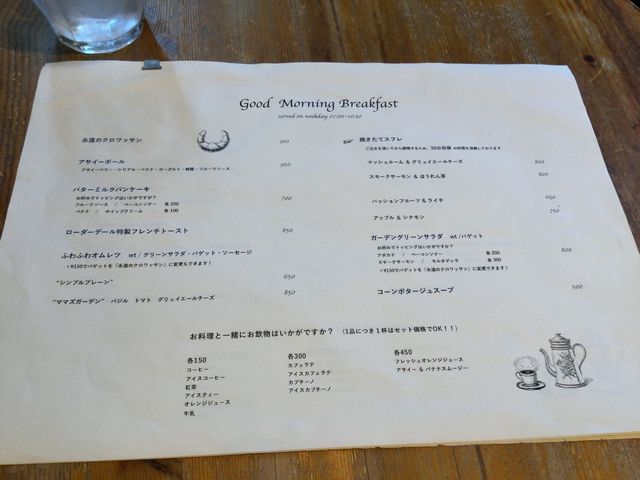 Good Morning Breakfast
served on weekday 07:00~10:30
永遠のクロワッサン 300
アサイーボール 950
アサイーベリー・シリアル・バナナ・ヨーグルト・蜂蜜・フルーツソース
バターミルクパンケーキ 700
お好みでトッピングはいかがですか？
フルーツソース / ベーコンソテー 各 200
バナナ / ホイップクリーム 各 100
ローダーデール特製フレンチトースト 850
ふわふわオムレツ wt / グリーンサラダ・バゲット・ソーセージ
+¥150でバゲットを「永遠のクロワッサン」に変更もできます！
"シンプルプレーン" 650
"ママズガーデン" バジル トマト グリュイエールチーズ 850
焼きたてスフレ
ご注文を頂いてから調理するため、30分前後 お時間を頂戴しております
マッシュルーム & グリュイエールチーズ 800
スモークサーモン & ほうれん草 800
パッションフルーツ & ライチ 650
アップル & シナモン 750
ガーデングリーンサラダ wt / バゲット 800
お好みでトッピングはいかがですか？
アボカド / ベーコンソテー 各 200
スモークサーモン / モルタデッラ 各 300
+¥150でバゲットを「永遠のクロワッサン」に変更できます！
コーンポタージュスープ 500
お料理と一緒にお飲物はいかがですか？ （1品につき1杯はセット価格でOK！！）
各150
コーヒー
アイスコーヒー
紅茶
アイスティー
オレンジジュース
牛乳
各300
カフェラテ
アイスカフェラテ
カプチーノ
アイスカプチーノ
各450
フレッシュオレンジジュース
アサイー & バナナスムージー